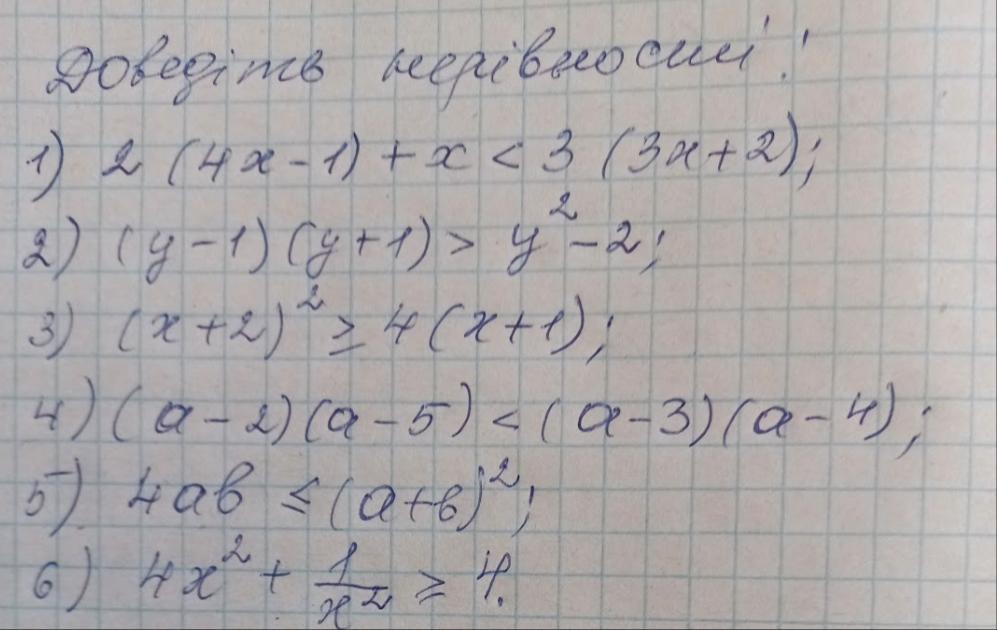 Доведіть нерівності!
1) 2 (4x - 1) + x < 3 (3x + 2);
2) (y - 1) (y + 1) > y² - 2;
3) (x + 2)² ≥ 4 (x + 1);
4) (a - 2) (a - 5) < (a - 3) (a - 4);
5) 4ab ≤ (a + b)²;
6) 4x² + 1/x² ≥ 4.